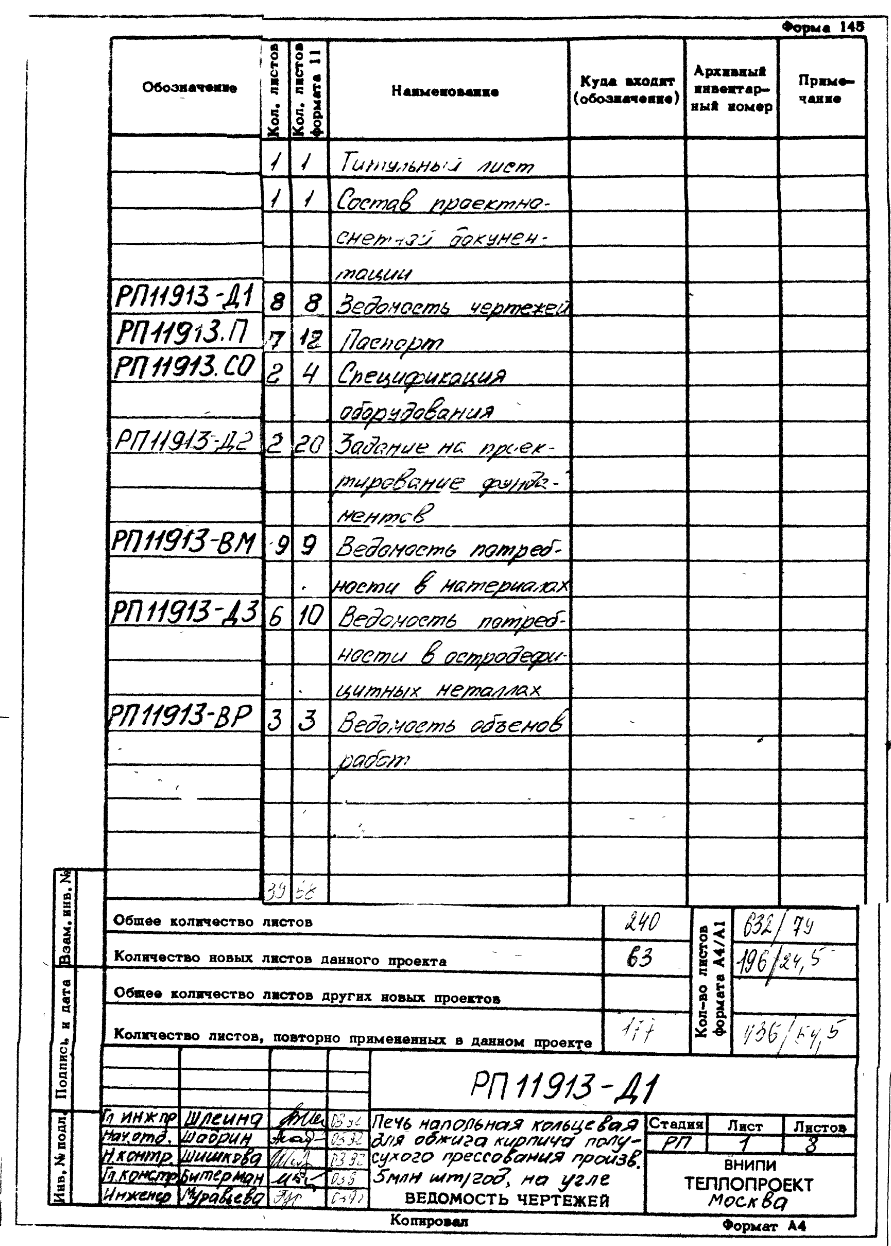 Форма 145
Обозначение
Кол. листов
Кол. листов формата 11
Наименование
Куда входит (обозначение)
Архивный инвентарный номер
Примечание
1 1 Титульный лист
1 1 Состав проектно-
сметной докумен-
тации
РП11913-Д1 8 8 Ведомость чертежей
РП11913.П 7 12 Паспорт
РП11913.СО 2 4 Спецификация
оборудования
РП11913-Д2 2 20 Задание на проек-
тирование фунда-
ментов
РП11913-ВМ 9 9 Ведомость потреб-
ности в материалах
РП11913-Д3 6 10 Ведомость потреб-
ности в остродефи-
цитных металлах
РП11913-ВР 3 3 Ведомость объемов
работ
39
Общее количество листов 240 632/79
Количество новых листов данного проекта 63 196/24,5
Общее количество листов других новых проектов
Количество листов, повторно примененных в данном проекте 177 436/54,5
Кол-во листов формата А4/А1
Взам. инв. №
Подпись и дата
Инв. № подл.
РП11913-Д1
Гл инж пр Шлеина
Нач.отд. Шабрин
Н.контр. Шишкова
Гл.констр Битерман
Инженер Муравьева
Печь напольная кольцевая
для обжига кирпича полу-
сухого прессования произв.
5млн шт/год, на угле
ВЕДОМОСТЬ ЧЕРТЕЖЕЙ
Стадия Лист Листов
РП 1 8
ВНИПИ
ТЕПЛОПРОЕКТ
Москва
Копировал
Формат А4